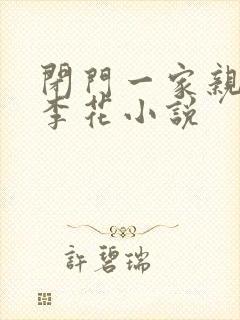 閉門一家親
李花小説
許碧瑞